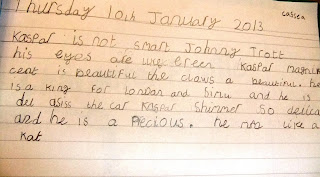 Thursday 10th January 2013
cassea
Kaspar is not smart Johnny Trott
his eyes are Green Kaspar magnifi
cent is beautiful the claws a beautiful. he
is a king for London and and he is
the cat Kaspar shimmer so delica
and he is a Precious. he like a
kat